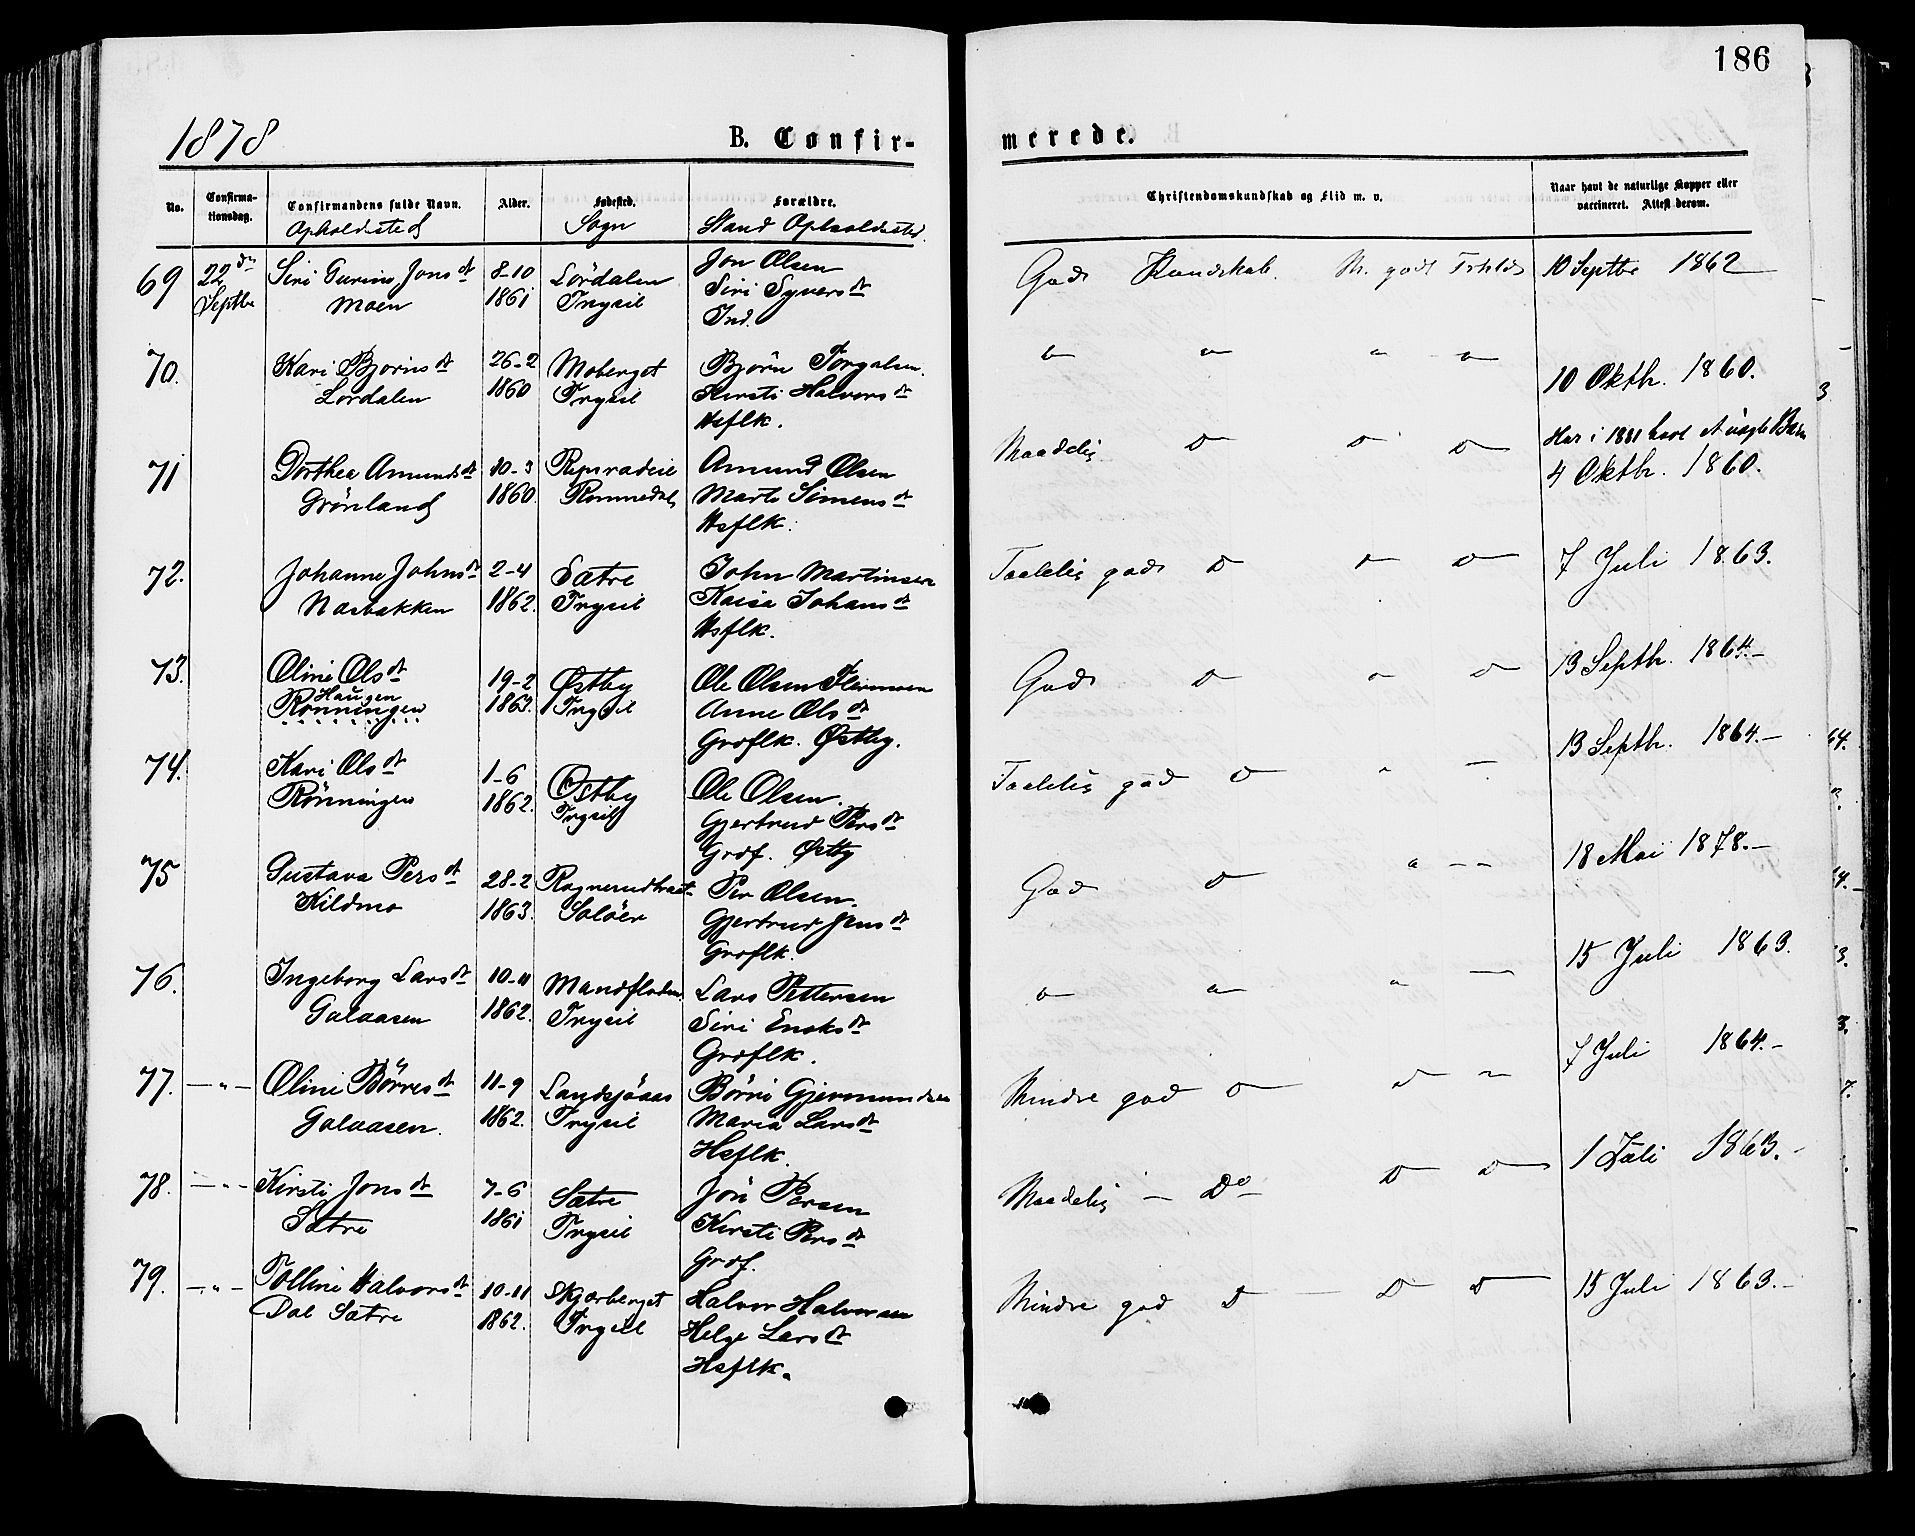 186
1878
B. Confir-
merede.
No.
Confirma-
tionsdag.
Confirmandens fulde Navn.
Opholdsted
Alder.
Fødested.
Sogn
Forældre.
Stand Opholdssted.
Christendomskundskab og Flid m. v.
Naar havt de naturlige Kopper eller
vaccineret. Attest derom.
69
22de
Septbr
Siri Gurine Jonsdt
Moen
8-10
1861
Lördalen
Trysil
Jon Olsen
Siri Syversdt
Ind.
God Kundskab. M. godt Forhold
10 Septbr 1862
70.
Kari Bjornsdt
Lördalen
26-2
1860
Moberget
Trysil
Björn Torgalsen.
Kirsti Halvorsdt
Hsflk.
10 Oktbr. 1860.
71
Dorthea Amundsdt
Grönland
10-3
1860.
Romedal
Amund Olsen
Marte Simensdt
Hsflk.
Maadelig D D D
Har i 1881 havt et uægte Barn
4 Oktbr. 1860.
72.
Johanne Johnsdt
Næsbakken
2-4
1862.
Sætre
Trysil
John Martinsen
Kaisa Johansdt
Hsflk.
Taalelig god D D D
7 Juli 1863.
73.
Oline Olsdt
Haugen
Rönningen
19-2
1863.
Østby
Trysil
Ole Olsen Flermoen
Anne Olsdt
Grdflk. Østby.
God D
13 Septbr. 1864.-
74.
Kari Olsdt
Rönningen
1-6
1862.
Østby
Trysil
Ole Olsen.
Gjertrud Persdt
Grdf. Østby
Taalelig god D
13 Septbr. 1864.-
75
Gustava Persdt
Kildmo
28-2
1863.
Rognerudtraet
Solöer
Per Olsen.
Gjertrud Jensdt
Grdflk.
God D
18 Mai 1878.-
76.
Ingeborg Larsdt
Galaasen
10-11
1862.
Mandfloden
Trysil
Lars Pettersen
Siri Enoksdt
Grdflk.
15 Juli 1863.
77. - " -
Oline Börresdt
Galaasen.
11-9
1862.
Landsjöaas
Trysil
Börri Gjermundsen
Maria Larsdt
Hsflk.
Mindre god
7 Juli 1864.-
78. - " -
Kirsti Jonsdt
Sætre
7-6
1861
Sætre
Trysil
Jon Persen
Kirsti Persdt
Grdf.
Maadelig - Do D D
1 Juli 1863.-
79. - " -
Polline Halvorsdt
Dal Sætre
10-11
1862.
Skjærberget
Trysil
Halvor Halvorsen
Helge Larsdt
Hsflk.
Mindre god D D D
15 Juli 1863.-